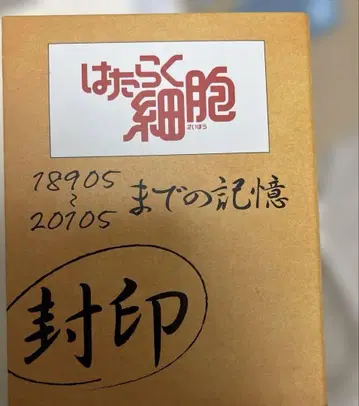 はたらく
細胞
さいぼう
18905
〜
20105
までの記憶
封印